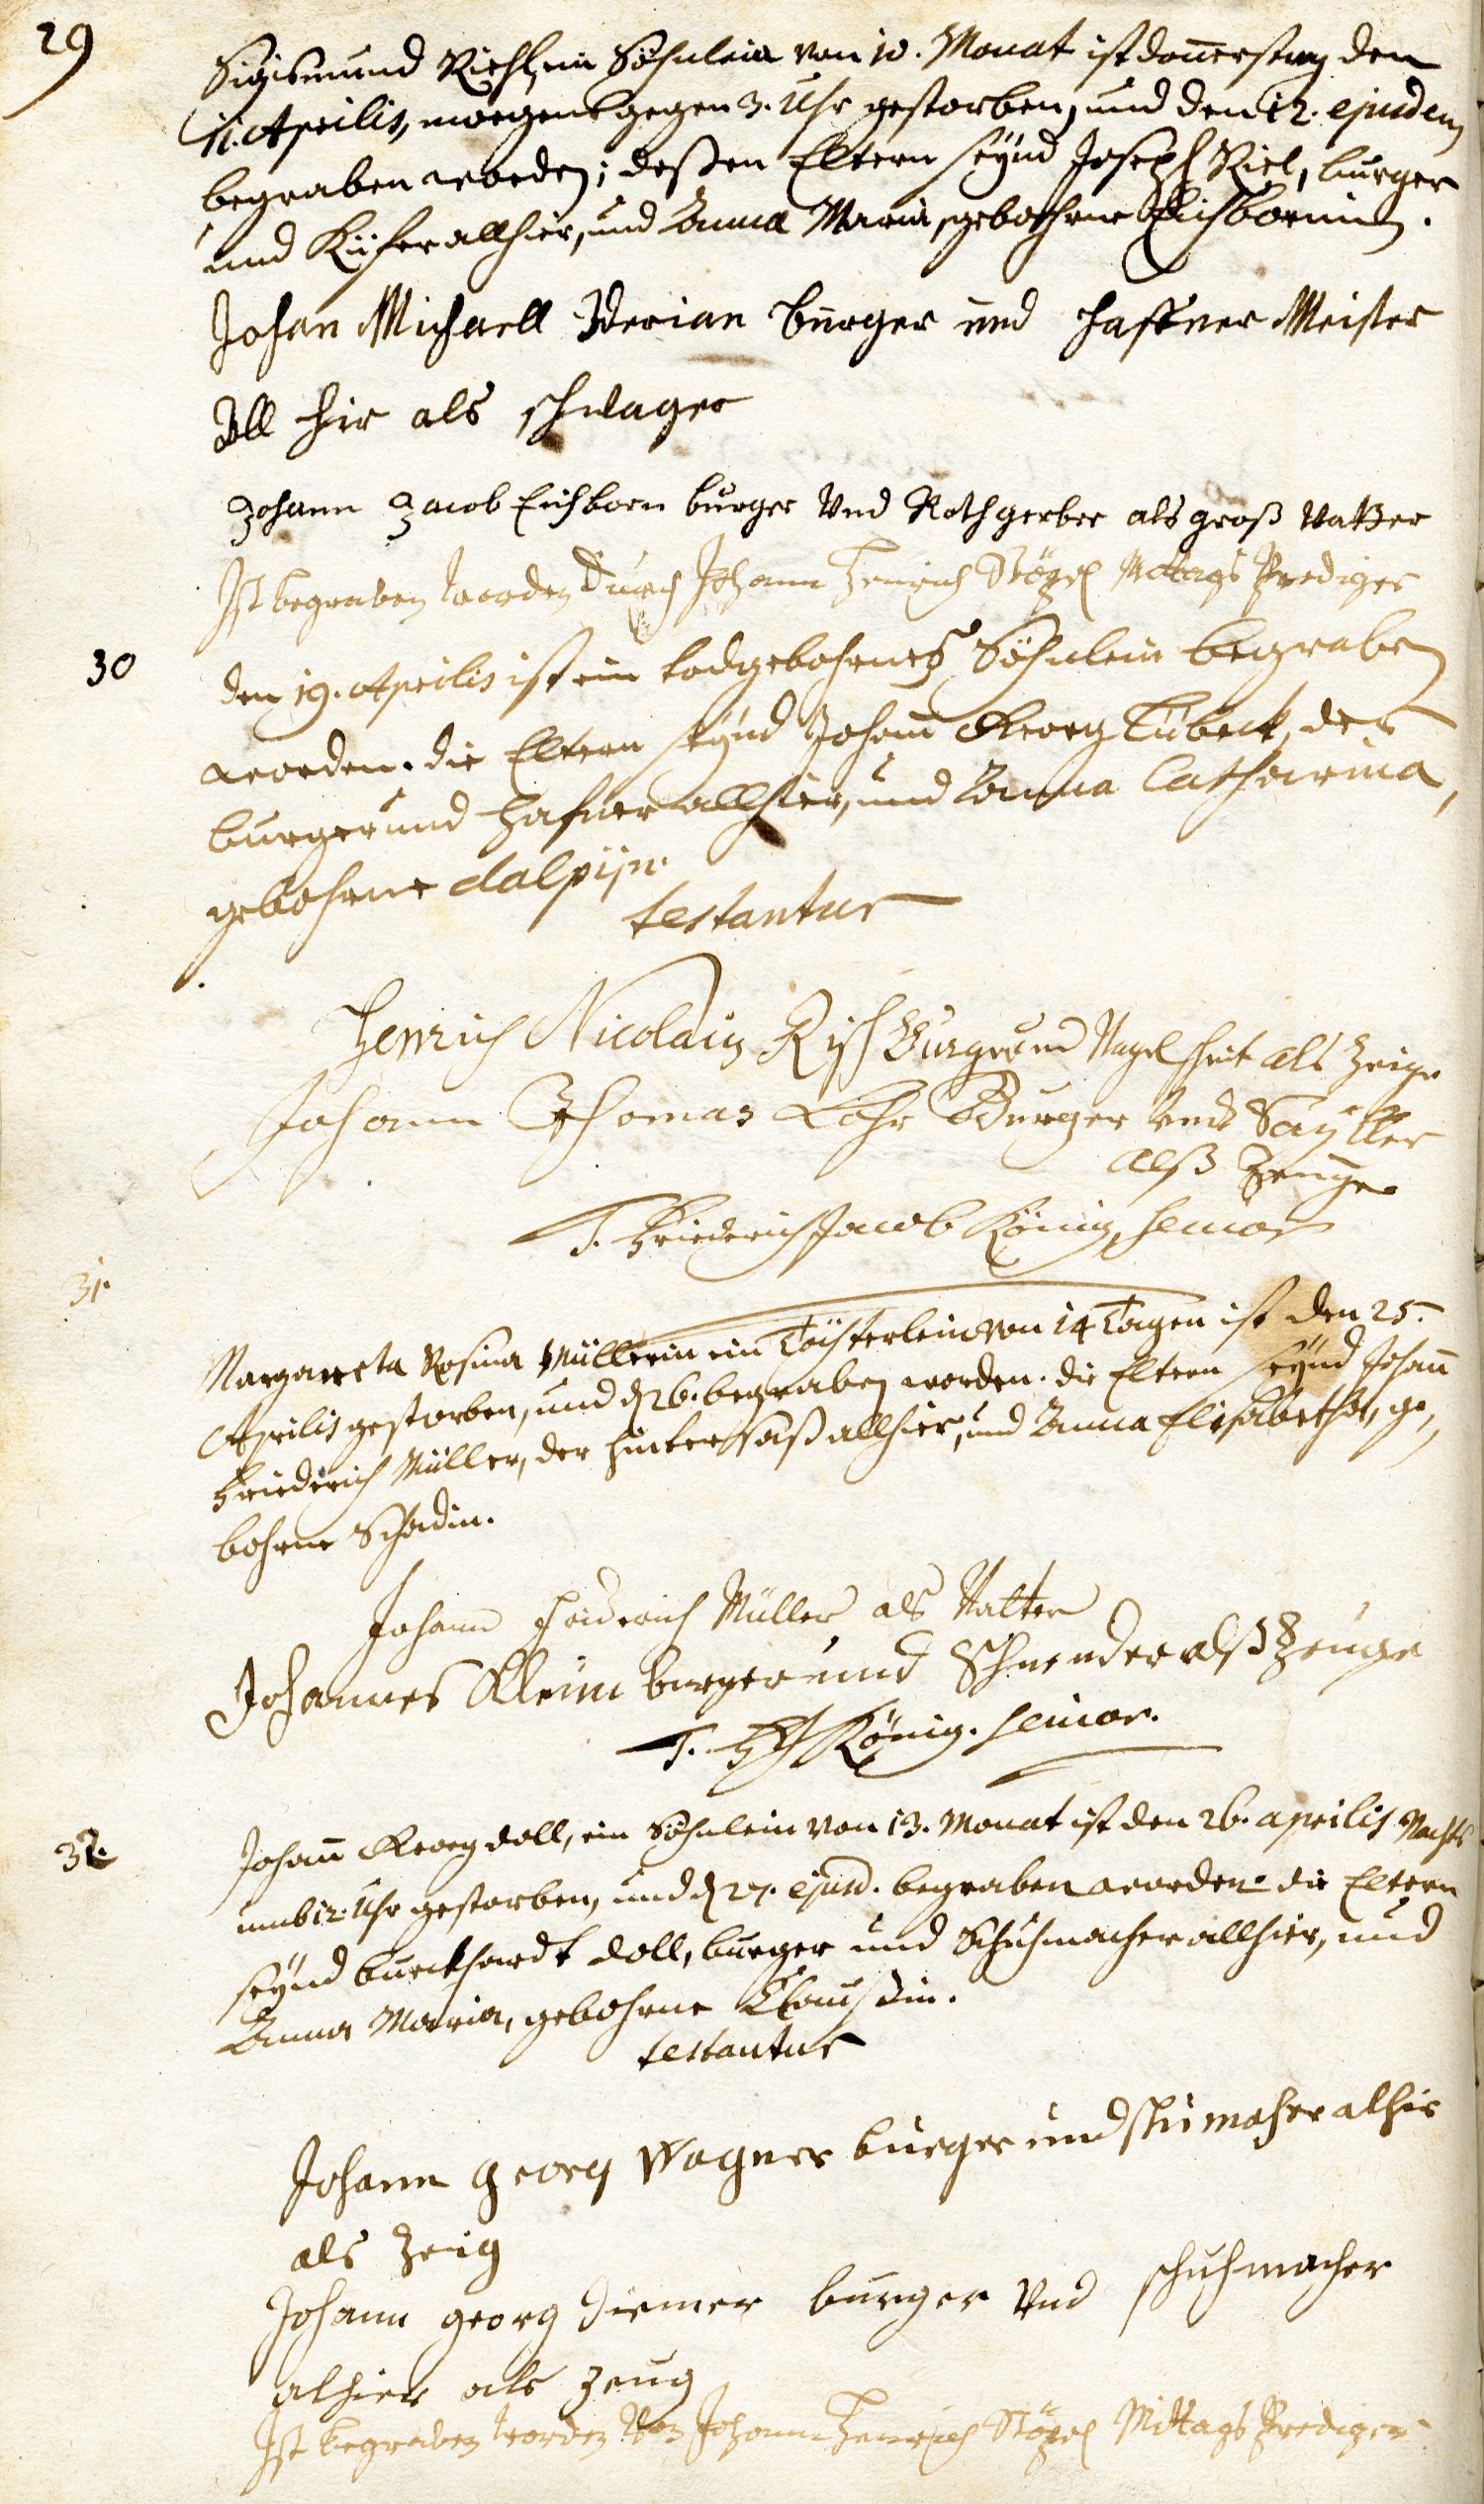 29
Sigismund Riehl, ein Söhnlein von 10. Monat ist donerstag den
11. Aprilis, morgens gegen 3. Uhr gestorben, und den 12. ejusdem
begraben worden; deßen Eltern seynd Joseph Riel, burger
und Küfer allhier, und Anna Maria, gebohrne Eichbornin.
Johan Michaell burger und haffner Meister
All hir als schwager
Johann Jacob Eichborn burger Vnd Rothgerber als groß Vatter
Ist begraben worden durch Johann Henrich Stözel Mittags Prediger
30
den 19. Aprilis ist ein todgebohrnes Söhnlein begraben
worden. die Eltern seynd Johann Georg Lübeck, der
burger und Hafner allhier, und Anna Catharina,
gebohrne
testantur
Henrich Nicolaus Burger und Nagelschmit als Zeige
Johann Thomas Lohr Burger Vnd Sayller
alß Zeuge
T. Friederich Jacob König, Senior
31.
Margareta Rosina Müllerin ein Töchterlein von 14 Tagen ist den 25.
Aprilis gestorben, und d 26. begraben worden. die Eltern seynd Johann
Friederich Müller, der hintersaß allhier, und Anna Elisabetha, ge,
bohrne Schadin.
Johann Friderich Müller als Vatter
Johannes Klein burger und Schneuder alß Zeuge
T. FJ König. Senior.
32.
Johann Georg doll, ein Söhnlein von 13. Monat ist den 26. aprilis Nachts
umb 12. Uhr gestorben, und d 27. ejusd. begraben worden. die Eltern
seynd burckhardt doll, burger und Schuhmacher allhier, und
Anna Maria, gebohrne
testantur
Johann georg Wagner burger und schumacher alhir
als Zeug
Johann georg diemer burger Vnd schuhmacher
alhier als Zeug
Ist begraben worden von Johann Henrich Stözel Mittags Prediger